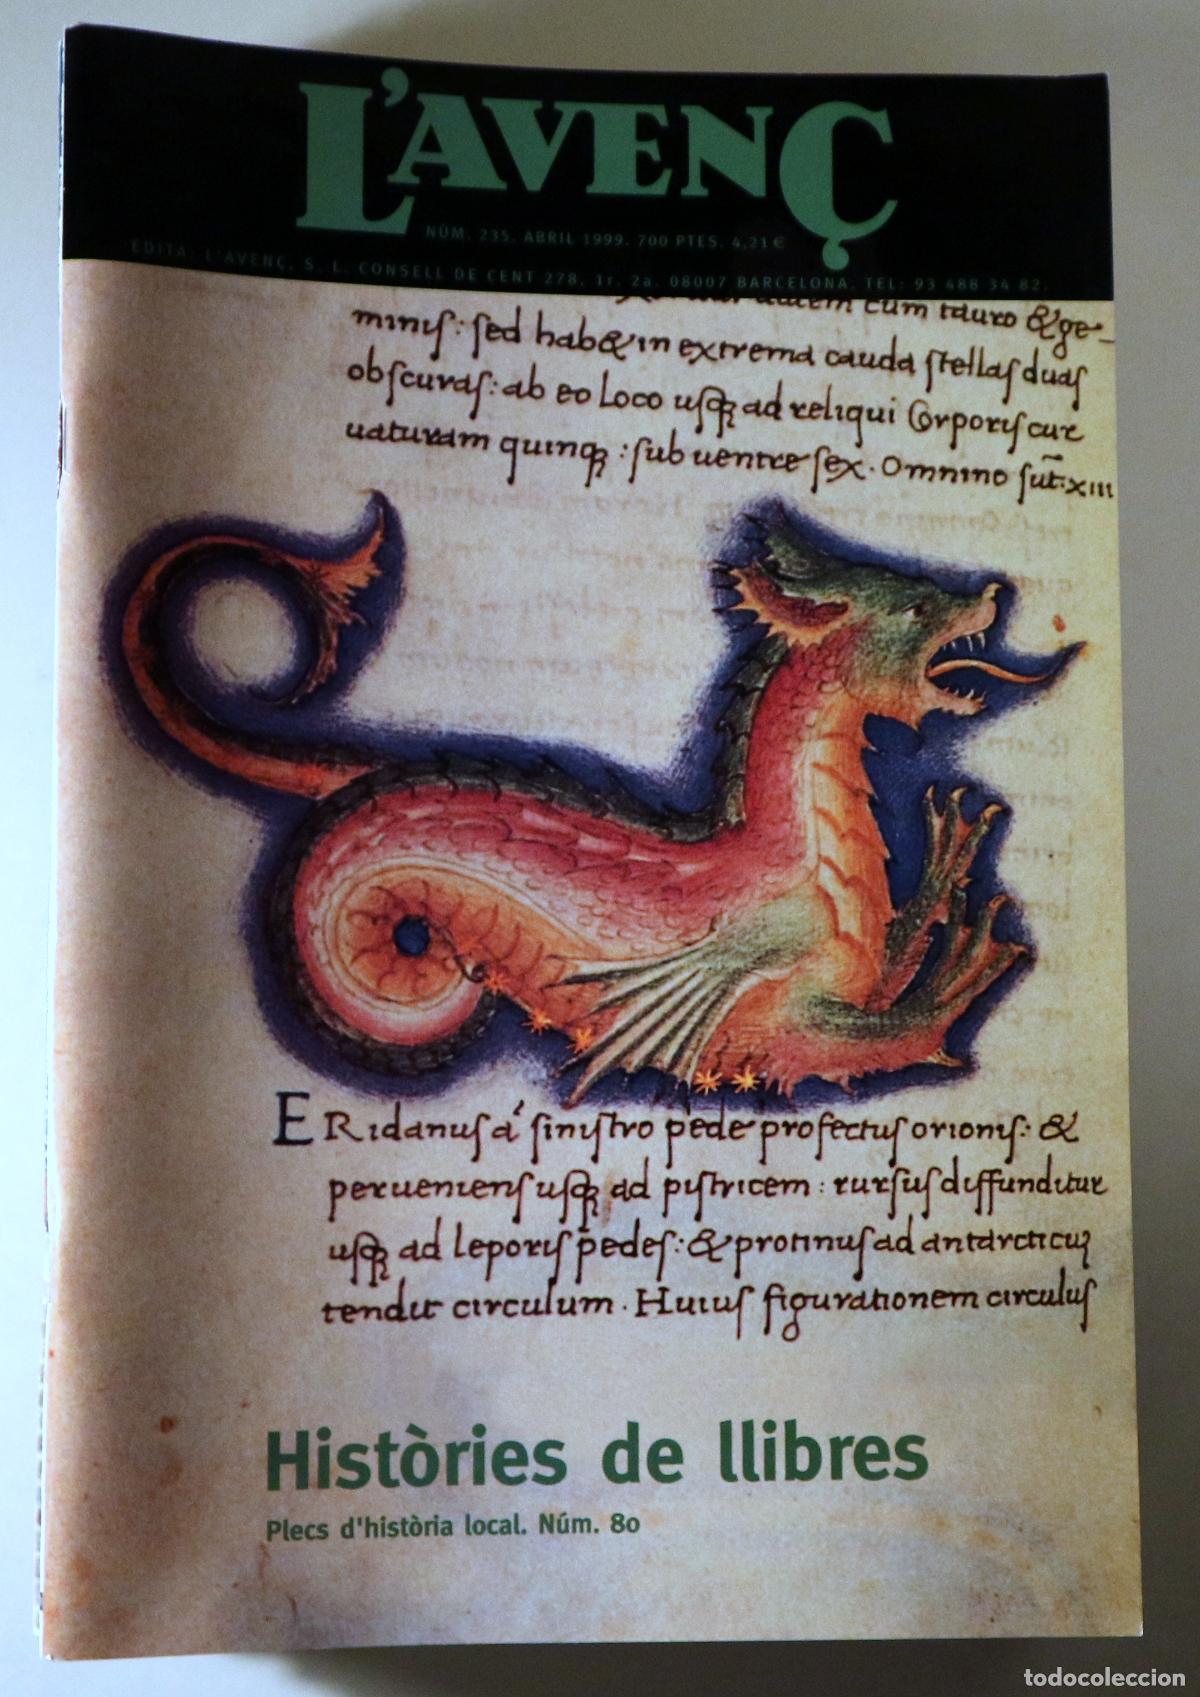 L'AVENÇ
NÚM. 235. ABRIL 1999. 700 PTES. 4,21 €
EDITA: L'AVENÇ, S. L. CONSELL DE CENT 278, 1r, 2a. 08007 BARCELONA. TEL: 93 488 34 82.
autem cum tauro & ge-
minis: sed hab& in extrema cauda stellas duas
obscuras: ab eo loco usq; ad reliqui corporis cur
uaturam quinq; : sub uentre sex. Omnino sūt: xiii
ERidanus á sinistro pede profectus orionis: &
perueniens usq; ad pistricem: rursus diffunditur
usq; ad leporis pedes: & protinus ad antarcticu;
tendit circulum. Huius figurationem circulus
Històries de llibres
Plecs d'història local. Núm. 80
todocoleccion